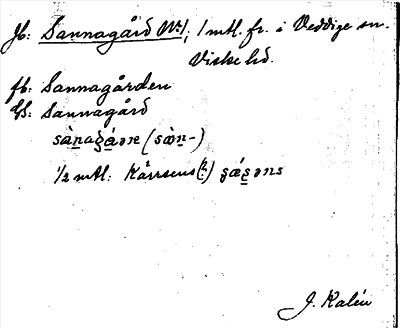 Jb: Sannagård Nr 1; 1 mtl. fr. i Veddige sn.
Viske hd.
fb: Sannagården
GS: Sannagård
sànagáɔn (sàn-)
1/2 mtl: Kärrsens(?)
J. Kalén